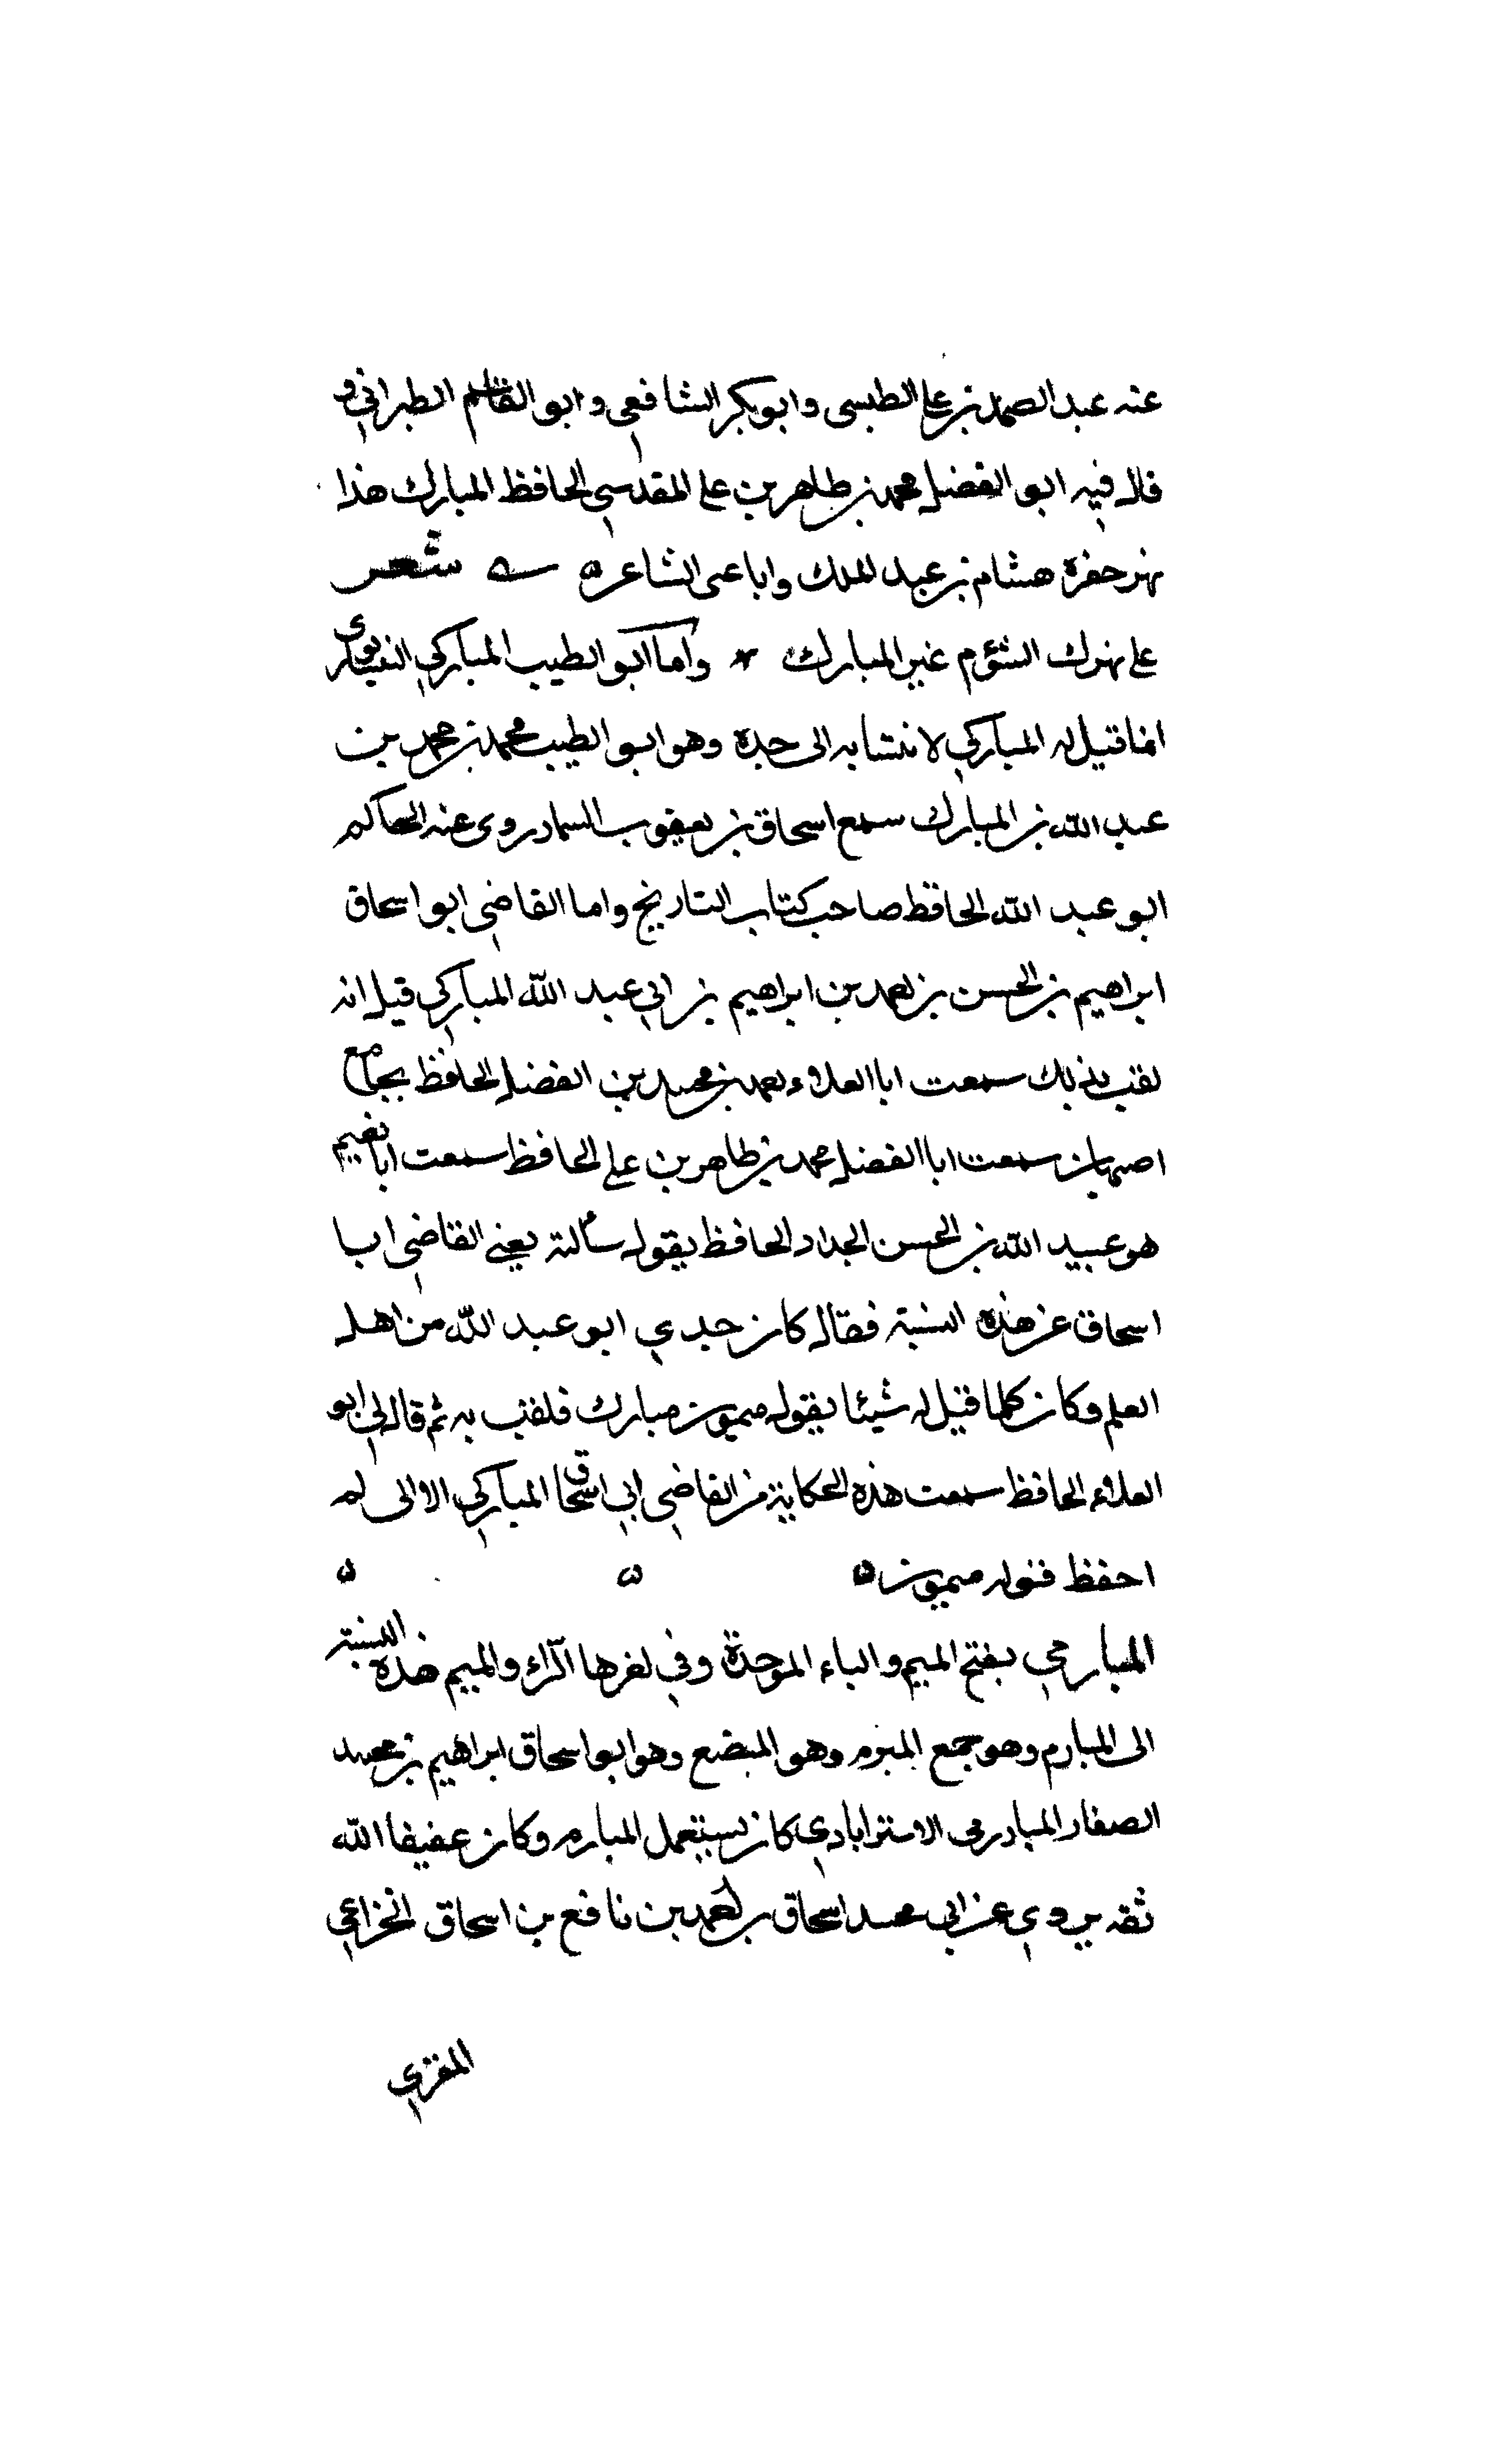 عنه عبد الصمد بن علي الطبسى وابو بكر الشافعي وابو القاسم الطبراني و
قال فيه ابو الفضل محمد بن طاهر بن علي المقدسي الحافظ المبارك هذا
نهر حفره هشام بن عبد الملك واباعى الشاعر شعر
على نهرك الشؤم غير المبارك وأما ابو الطيب المباركي النيسابورى
انما قيل له المباركي لانتسابه الى جده وهو ابو الطيب محمد بن محمد بن
عبد الله بن المبارك سمع اسحاق بن يعقوب السمار روى عنه الحاكم
ابو عبد الله الحافظ صاحب كتاب التاريخ واما القاضي ابو اسحاق
ابراهيم بن الحسن بن احمد بن ابراهيم بن ابي عبد الله المباركي قيل انه
لقب بذلك سمعت ابا العلاء احمد بن محمد بن الفضل الحافظ بجامع
اصبهان سمعت ابا الفضل محمد بن طاهر بن علي الحافظ سمعت ابا نعيم
هو عبيد الله بن الحسن الحداد الحافظ يقول سألته يعني القاضي ابا
اسحاق عن هذه النسبة فقال كان جدي ابو عبد الله من اهل
العلم وكان كلما قيل له شيئا يقول ميمون مبارك فلقب به ثم قال لي ابو
العلاء الحافظ سمعت هذه الحكاية من القاضي ابي اسحاق المباركي الا انى لم
احفظ قوله ميمون
المبارمي بفتح الميم والباء الموحدة وفي اخرها الراء والميم هذه النسبة
الى المبارم وهو جمع المبرم وهو المبضع وهو ابو اسحاق ابراهيم بن محمد
الصفار المبارمى الاستراباذي كان يستعمل المبارم وكان عفيفا الله
ثقه يروي عن ابي محمد اسحاق بن احمد بن نافع بن اسحاق الخزاعي
المقري